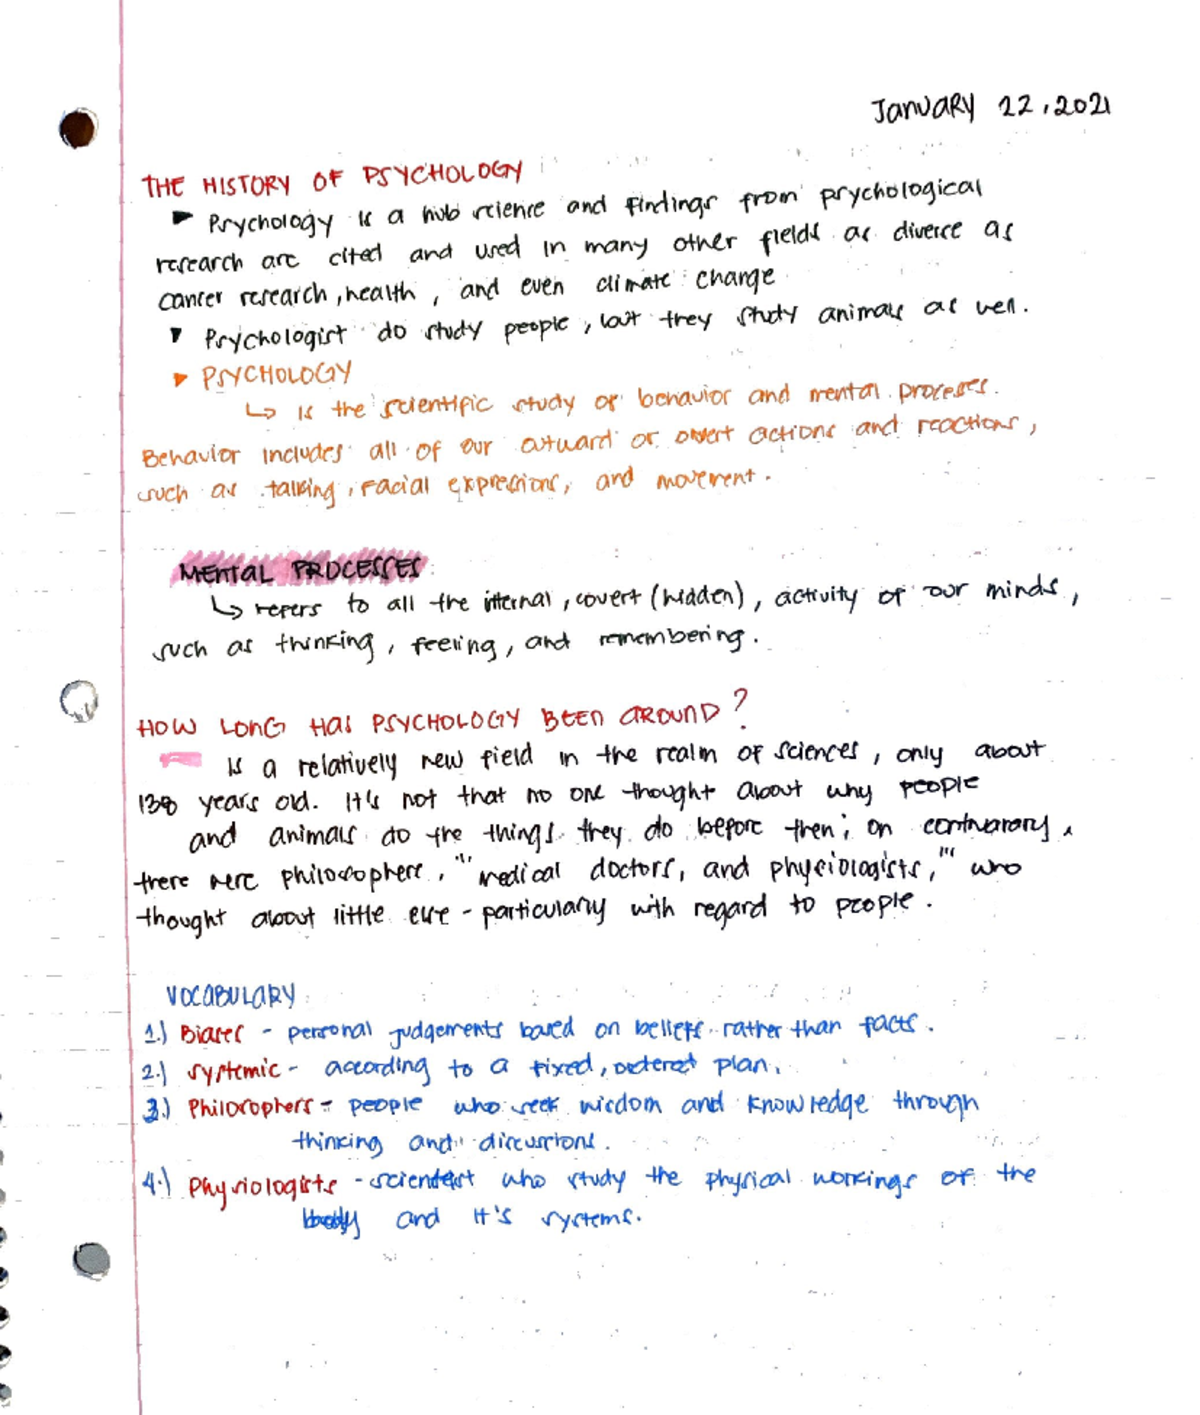 January 22, 2021
THE HISTORY OF PSYCHOLOGY
► Psychology is a hub science and findings from psychological
research are cited and used in many other fields as diverse as
cancer research, health, and even climate change
► Psychologist do study people, but they study animals as well.
► PSYCHOLOGY
↳ is the scientific study of behavior and mental processes.
Behavior includes all of our outward or overt actions and reactions,
such as talking, facial expressions, and movement.
MENTAL PROCESSES
↳ refers to all the internal, covert (hidden), activity of our minds,
such as thinking, feeling, and remembering.
HOW LONG HAS PSYCHOLOGY BEEN AROUND?
is a relatively new field in the realm of sciences, only about
138 years old. It's not that no one thought about why people
and animals do the things they do before then; on contruarary,
there were philosophers, "'medical doctors, and physiologists,"' who
thought about little else - particularly with regard to people.
VOCABULARY
1.) Biases - personal judgements based on beliefs rather than facts.
2.) Systemic - according to a fixed, ordered plan.
3.) Philosophers - people who seek wisdom and knowledge through
thinking and discussions.
4.) Physiologists - scientist who study the physical workings of the
body and it's systems.